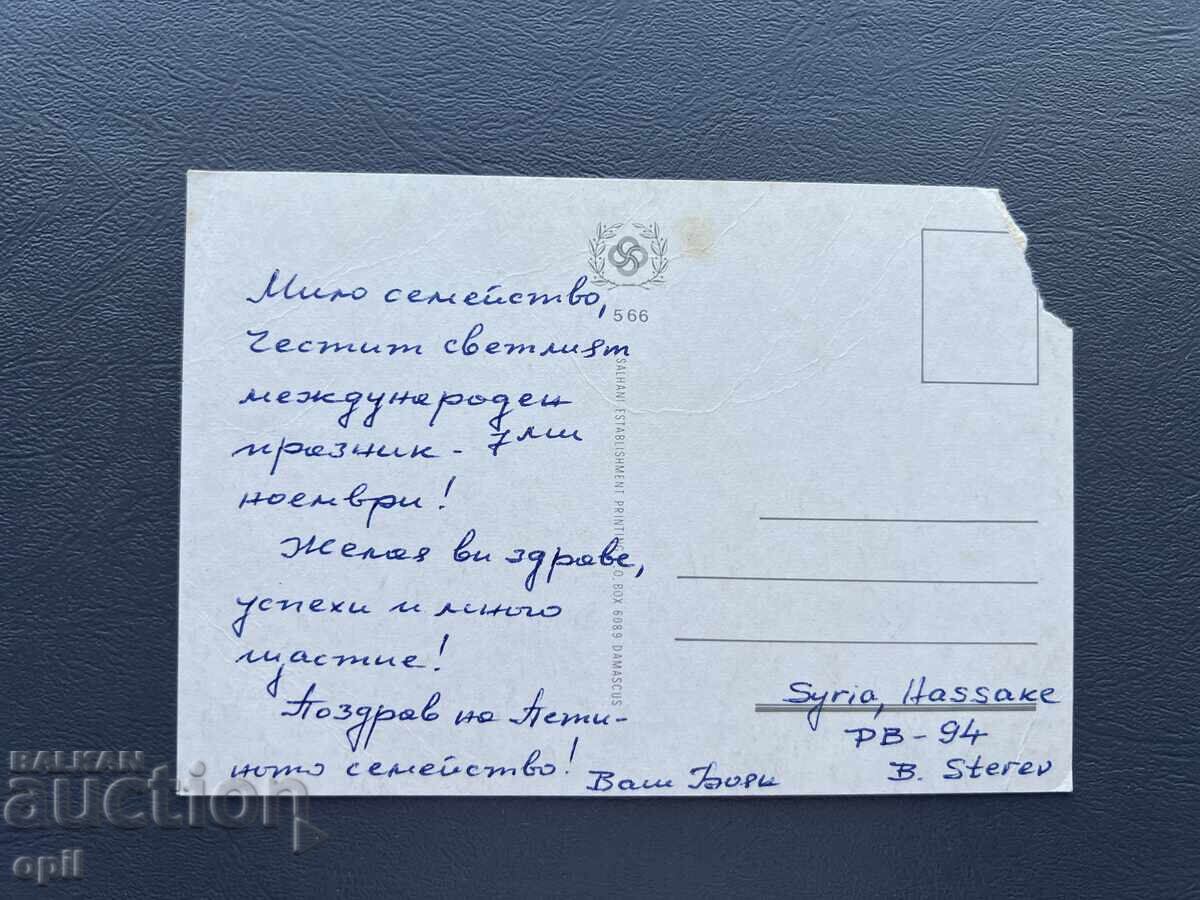 Мило семейство,
Честит светлият
международен
празник - 7ми
ноември!
Желая ви здраве,
успехи и много
щастие!
Поздрав на Пети-
ното семейство!
Ваш Боян
566
SALHANI ESTABLISHMENT PRINTING P.O.BOX 6089 DAMASCUS
Syria, Hassake
PB-94
B. Sterev
BALKAN
auction
opil